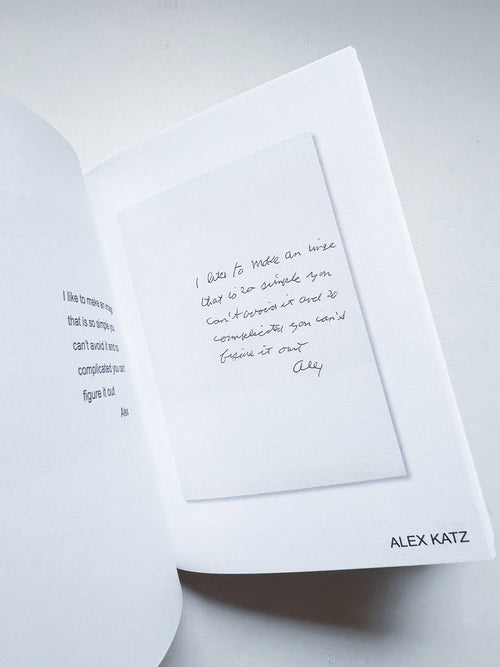 I like to make an image
that is so simple you
can't avoid it and so
complicated you can't
figure it out
Alex
I like to make an image
that is so simple you
can't avoid it and so
complicated you can't
figure it out
Alex
ALEX KATZ